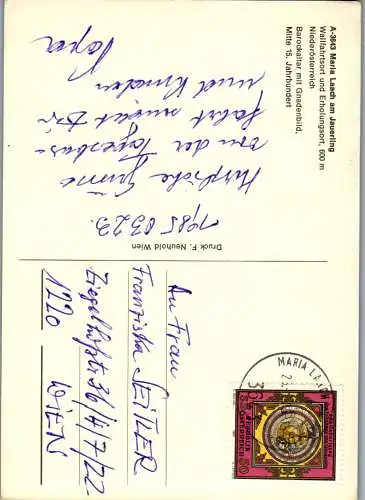 A-3643 Maria Laach am Jauerling
Wallfahrtsort und Erholungsort, 600 m
Niederösterreich
Barockaltar mit Gnadenbild,
Mitte 15. Jahrhundert
1985 03 23.
Herzliche Grüße
von der
fahrt
und Kinder
Papa
Druck F. Neuhold Wien
An Frau
Franziska SEITLER
Ziegelhofstr 36/4/7/22
1220 WIEN
MARIA LAACH
36
Republik
Österreich